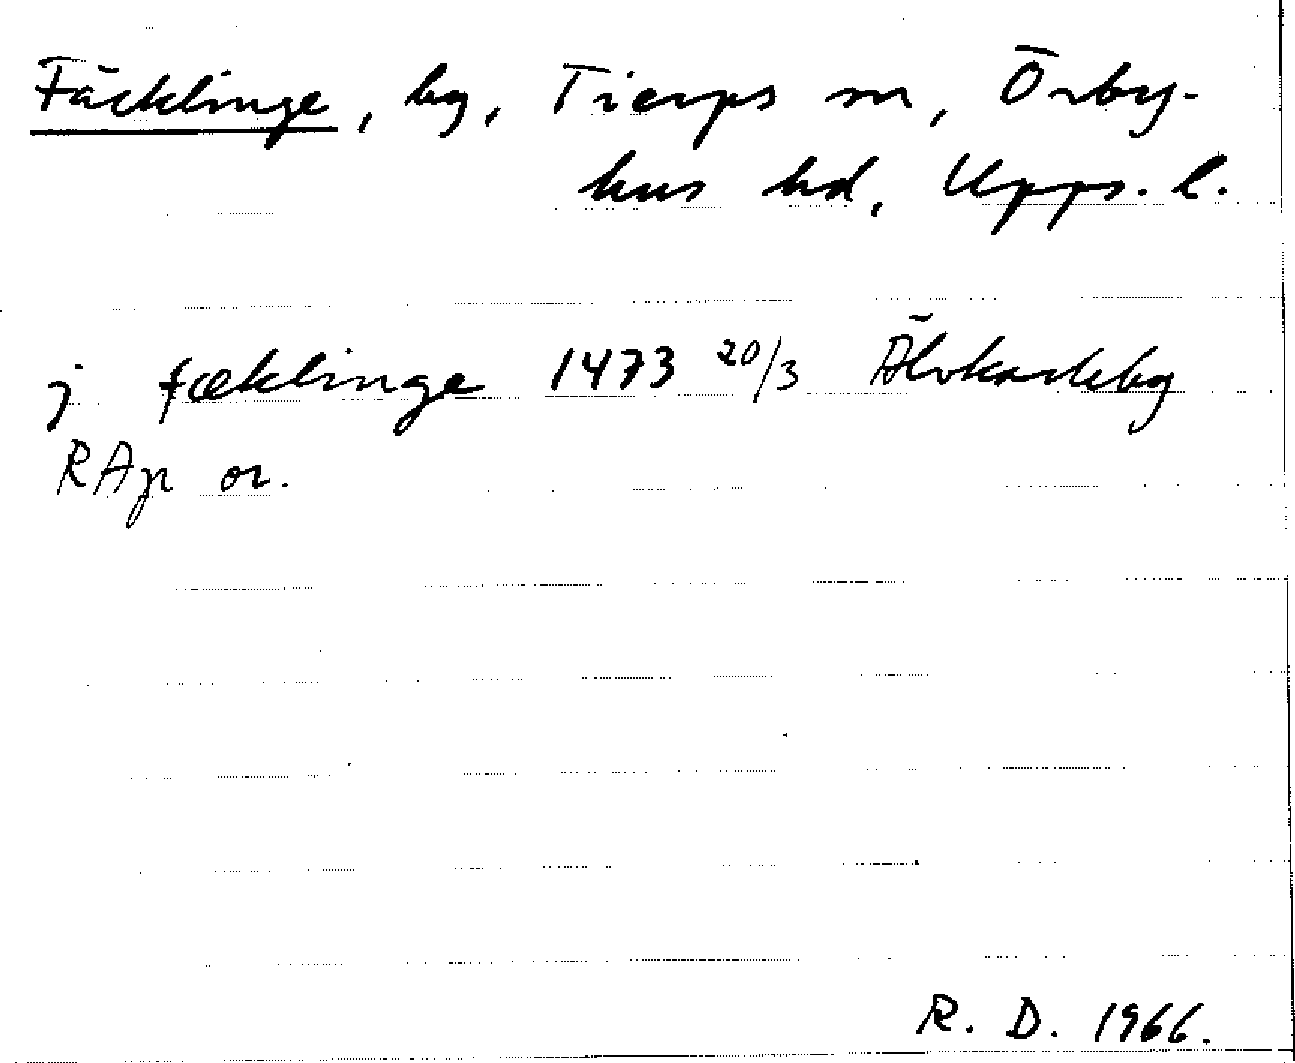 Fäcklinge, by, Tierps sn, Örby-
hus hd, Upps. l.
j fæklinge 1473 20/3 Älvkarleby
RAp or.
R. D. 1966.